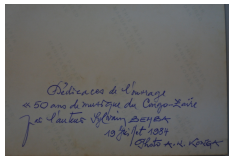 Dédicaces de l'ouvrage
« 50 ans de musique du Congo-Zaïre
par l'auteur Sylvain BEMBA
19 Juillet 1984
Photo A.-N.